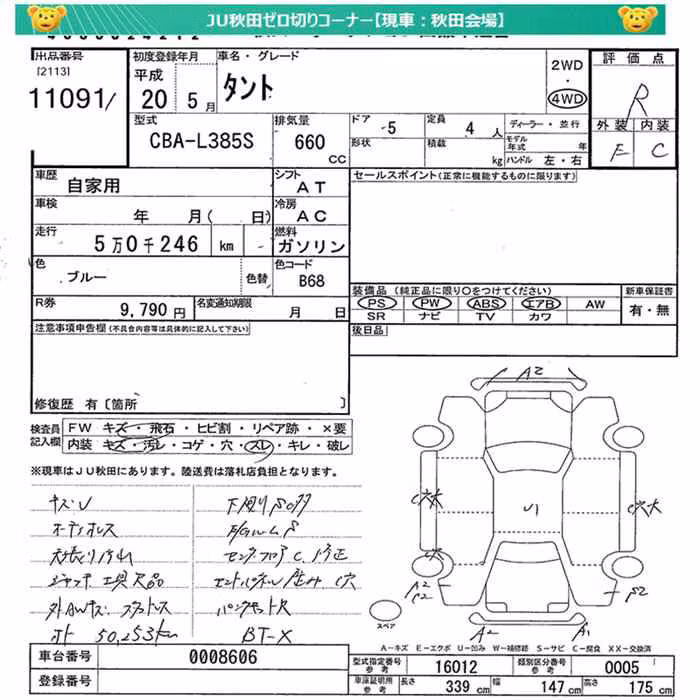 JU秋田ゼロ切りコーナー【現車：秋田会場】
出品番号 初度登録年月 車名・グレード 2WD 評価点
[2113] 平成 ・
11091/ 20 5月 タント 4WD R
型式 排気量 ドア 5 定員 4人 ディーラー・並行 外装 内装
CBA-L385S 660 CC 形状 積載 kg モデル年式 年 F C
ハンドル 左・右
車歴 自家用 シフト AT セールスポイント(正常に機能するものに限ります)
車検 年 月( 日) 冷房 AC
走行 5万0千246 km 燃料 ガソリン
色 ブルー 色替 色コード B68
装備品 (純正品に限り○をつけてください) 新車保証書
R券 9,790円 名変通知期限 月 日 PS PW ABS エアB AW 有・無
SR ナビ TV カワ
注意事項申告欄(不具合内容等は具体的に記入して下さい) 後日品
修復歴 有 [箇所 ]
検査員記入欄 FW キズ・飛石・ヒビ割・リペア跡・×要
内装 キズ・汚レ・コゲ・穴・スレ・キレ・破レ
※現車はJU秋田にあります。陸送費は落札店負担となります。
キズU
オーディオレス
ジャッキ 工具欠品
外AWキズ
50,253km
BT-X
A2
C穴大 U1 C穴大
C穴
A2
S2
A2 A1
スペア
A－キズ E－エクボ U－凹み W－補修跡 S－サビ C－腐食 XX－交換済
車台番号 0008606 型式指定番号 参考 16012 類別区分番号 参考 0005
登録番号 車庫証明用 参考 長さ 339cm 幅 147cm 高さ 175cm